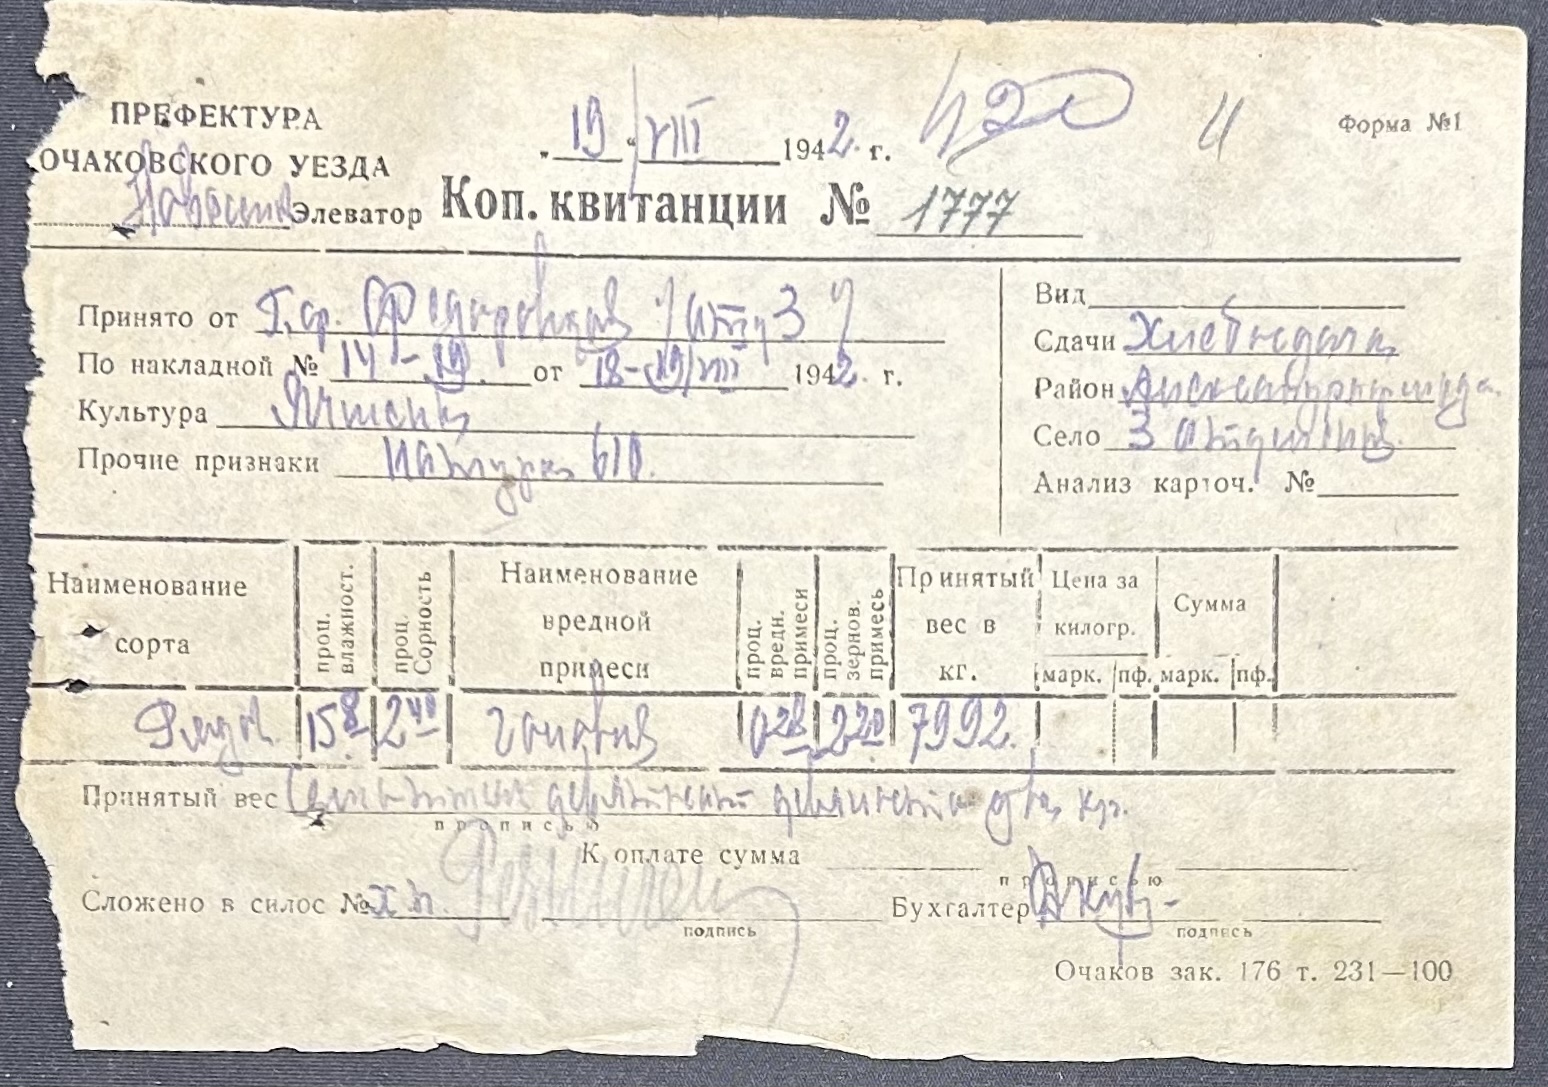 ПРЕФЕКТУРА
ОЧАКОВСКОГО УЕЗДА
Элеватор
"19" VIII 1942. г.
420
4
Форма №1
Коп. квитанции № 1777
Принято от Гр.
По накладной № 14-19 от 18-19/VIII 1942. г.
Культура Ячмень
Прочие признаки натура 610.
Вид
Сдачи Хлебосдача
Район
Село 3 отделение
Анализ карточ. №
Наименование сорта
проц. влажност.
проц. Сорность
Наименование вредной примеси
проц. вредн. примеси
проц. зернов. примесь
Принятый вес в кг.
Цена за килогр.
марк. пф.
Сумма
марк. пф.
Рядов. 15 8 2 40 головня 0 28 2 20 7992.
Принятый вес Семь тысяч девятьсот девяносто два кгр.
прописью
К оплате сумма
прописью
Сложено в силос №
подпись
Бухгалтер
подпись
Очаков зак. 176 т. 231—100